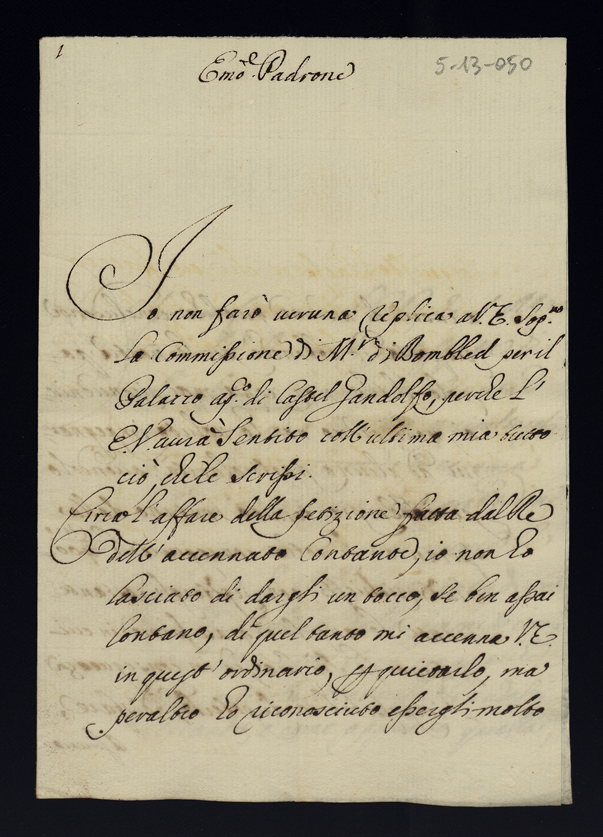 1
5-13-050
Emo e Padrone
Io non farò veruna replica al V.E. Sop.
La Commissione di M.r di Bombled per il
Palazzo ag.o di Castel Gandolfo, perche L'
E.V. aurà Sentito coll' ultima mia tutto
ciò che le scrissi.
Circa l'affare della petizione fatta dal Re
dell' accennato Contante, io non ho
lasciato di dargli un tocco, se ben assai
lontano, di quel tanto mi accenna V.E.
in quest' ordinario, quietarlo, ma
peraltro ho riconosciuto essergli molto